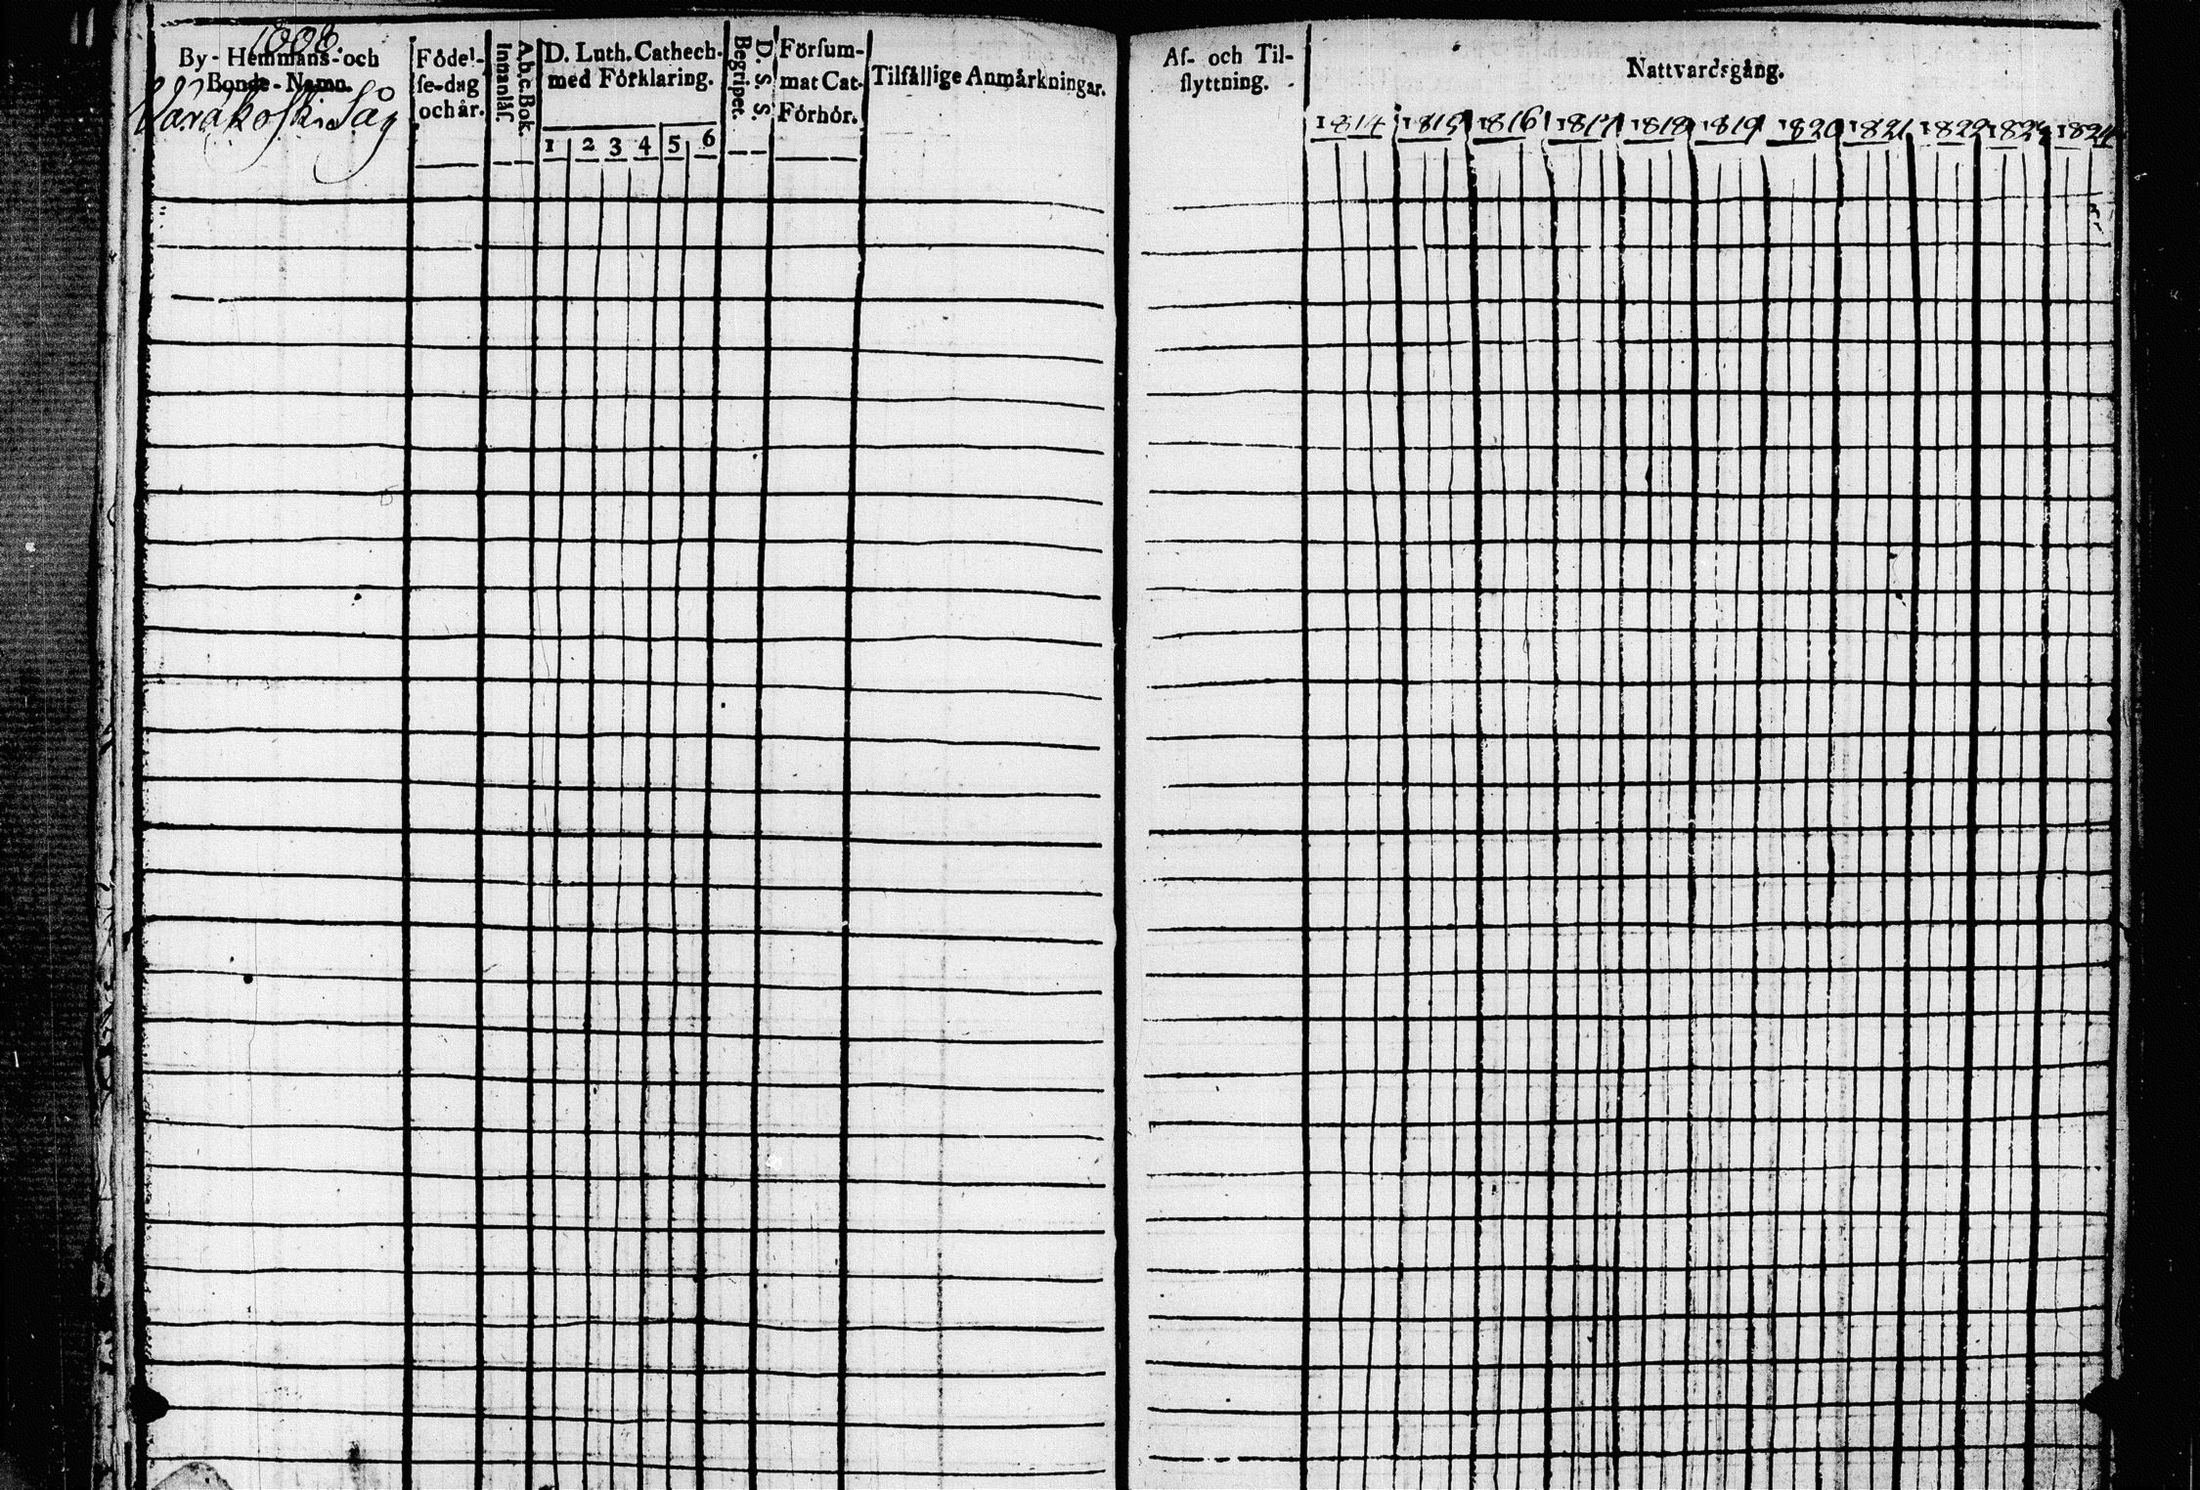 1008.
By- Hemmans- och
Bonde- Namn.
Warakoski Såg
Födel-
se-dag
och år.
Innanläs.
A.b.c. Bok.
D. Luth. Cathech-
med Förklaring.
1 2 3 4 5 6
Begripet.
D. S. S.
Försum-
mat Cat-
Förhör.
Tilfällige Anmärkningar.
Af- och Til-
flyttning.
Nattvardsgång.
1814 1815 1816 1817 1818 1819 1820 1821 1822 1823 1824